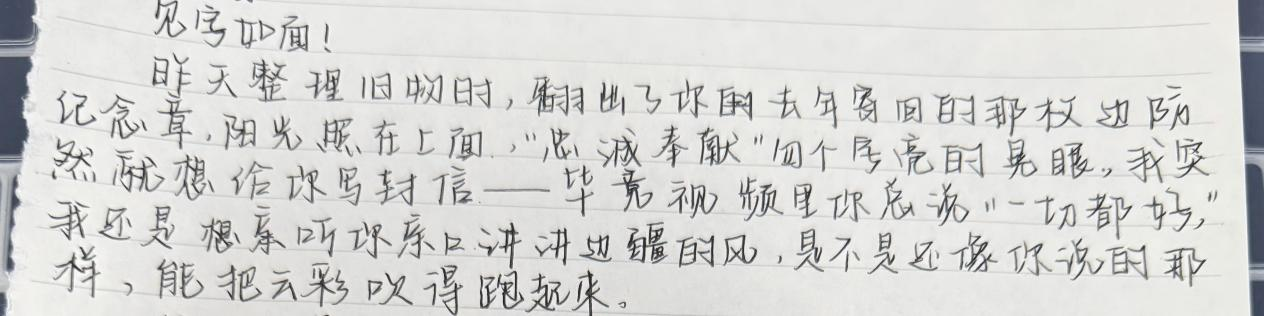 见字如面！
昨天整理旧物时，翻出了你的去年寄回的那枚边防
纪念章，阳光照在上面，“忠诚奉献”四个字亮的晃眼。我突
然就想给你写封信——毕竟视频里你总说“一切都好，”
我还是想亲听你亲口讲讲边疆的风，是不是还像你说的那
样，能把云彩吹得跑起来。